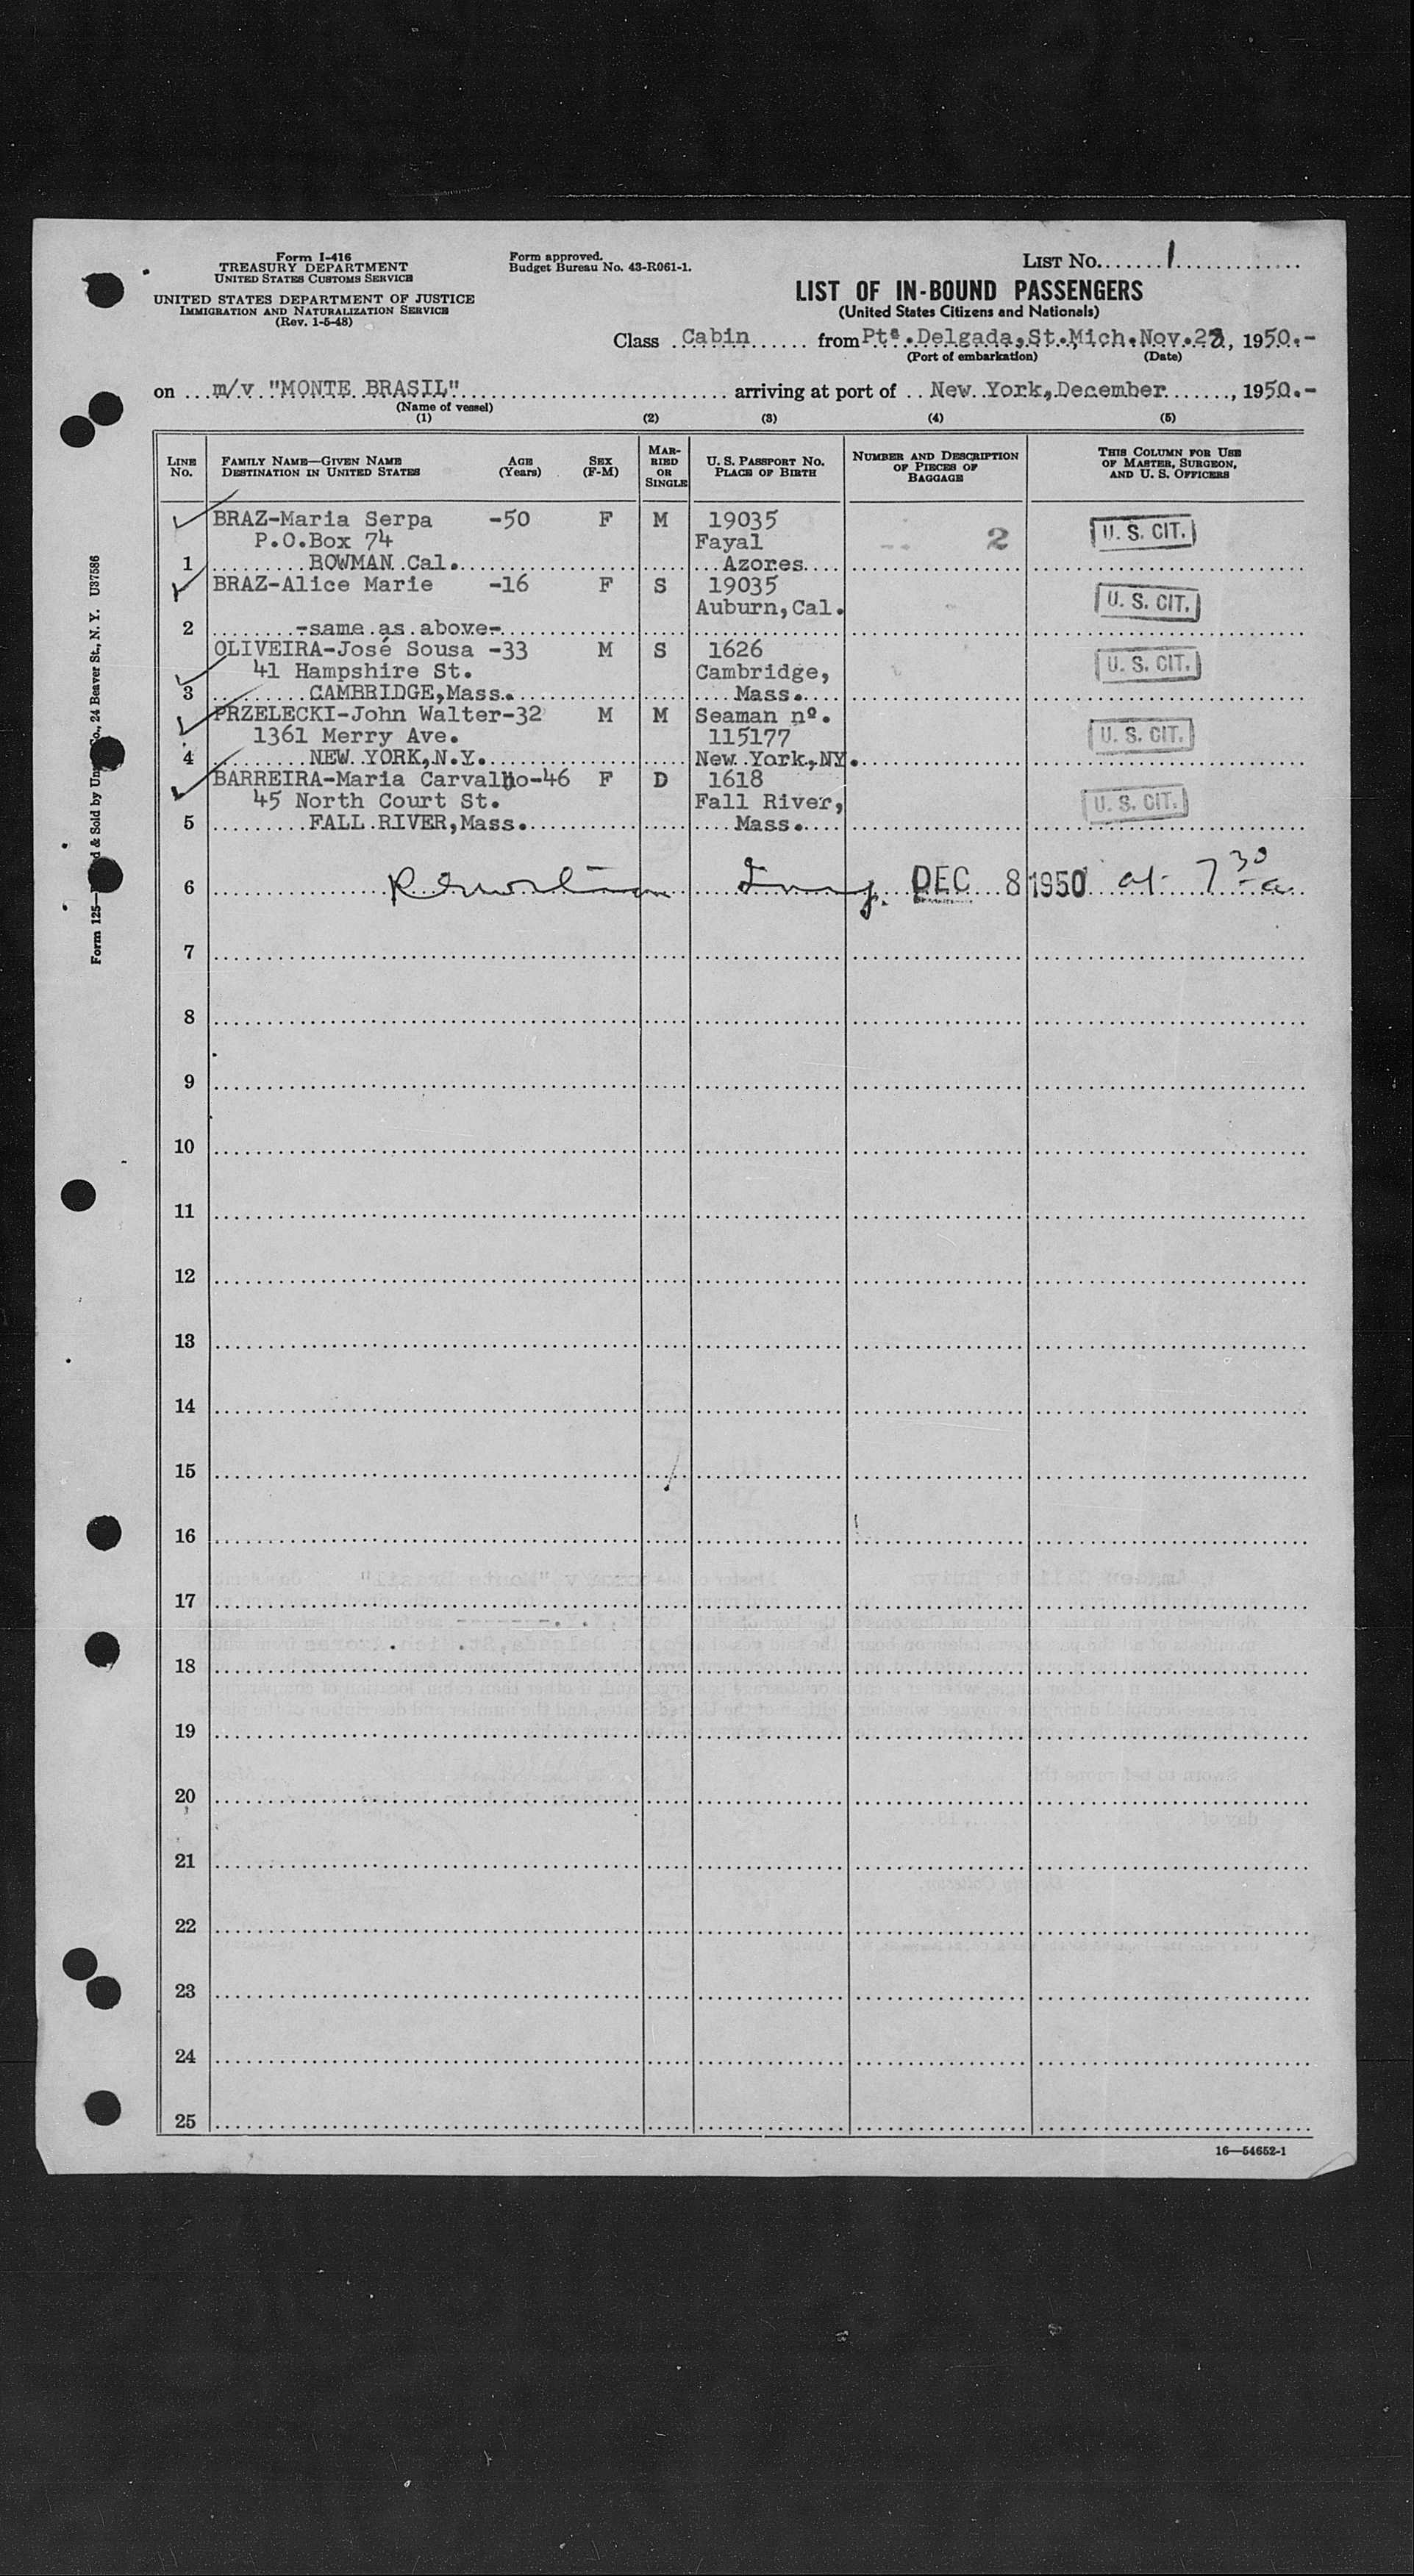 Form I-416
TREASURY DEPARTMENT
UNITED STATES CUSTOMS SERVICE
UNITED STATES DEPARTMENT OF JUSTICE
IMMIGRATION AND NATURALIZATION SERVICE
(Rev. 1-5-48)
Form approved.
Budget Bureau No. 43-R061-1.
LIST No. 1
LIST OF IN-BOUND PASSENGERS
(United States Citizens and Nationals)
Class Cabin from Ptª.Delgada,St.Mich.Nov. , 1950.-
(Port of embarkation) (Date)
on m/v "MONTE BRASIL" arriving at port of New York,December , 1950.-
(Name of vessel)
(1) (2) (3) (4) (5)
LINE No. FAMILY NAME—GIVEN NAME DESTINATION IN UNITED STATES AGE (Years) SEX (F-M) MARRIED OR SINGLE U. S. PASSPORT No. PLACE OF BIRTH NUMBER AND DESCRIPTION OF PIECES OF BAGGAGE THIS COLUMN FOR USE OF MASTER, SURGEON, AND U. S. OFFICERS
BRAZ-Maria Serpa -50 F M 19035 U. S. CIT.
P.O.Box 74 Fayal 2
1 BOWMAN Cal. Azores
BRAZ-Alice Marie -16 F S 19035 U. S. CIT.
Auburn,Cal.
2 -same as above-
OLIVEIRA-José Sousa -33 M S 1626 U. S. CIT.
41 Hampshire St. Cambridge,
3 CAMBRIDGE,Mass. Mass.
PRZELECKI-John Walter-32 M M Seaman nº. U. S. CIT.
1361 Merry Ave. 115177
4 NEW YORK,N.Y. New York,NY.
BARREIRA-Maria Carvalho-46 F D 1618 U. S. CIT.
45 North Court St. Fall River,
5 FALL RIVER,Mass. Mass.
6 DEC 8 1950 at 7 30 a
7
8
9
10
11
12
13
14
15
16
17
18
19
20
21
22
23
24
25
16—54652-1
Form 125— & Sold by Co., 24 Beaver St., N. Y. U37586